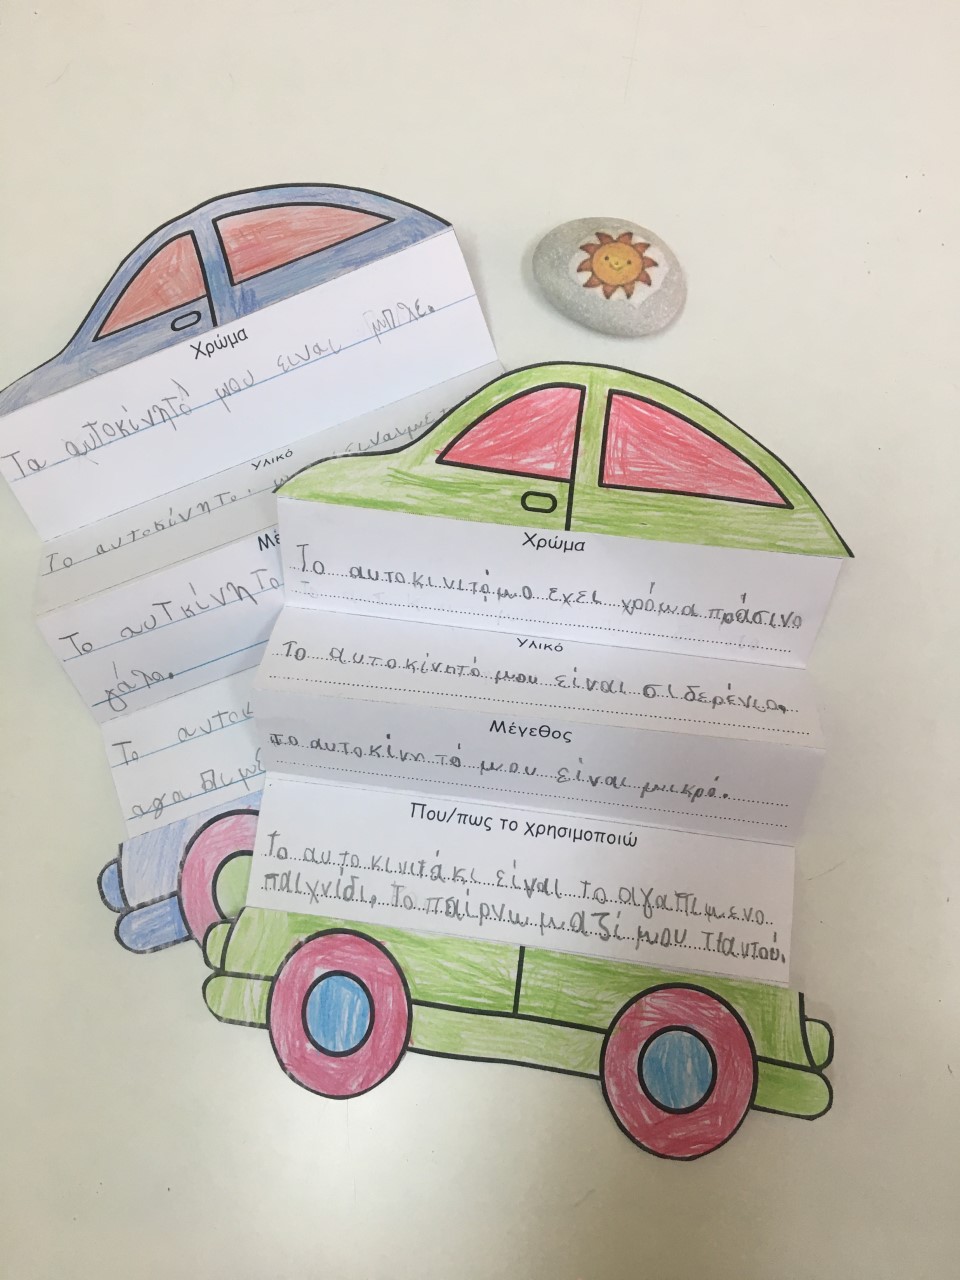 Χρώμα
Το αυτοκίνητό μου ειναι μπλε.
Υλικό
Το αυτοκίνητο
Το αυτκίνητο
Το
Χρώμα
Το αυτοκινιτόμο εχει χρόμα πράσινο
Υλικό
Το αυτοκίνητό μου είναι σιδερένιο.
Μέγεθος
το αυτοκίνητό μου είναι μικρό.
Που/πως το χρησιμοποιώ
Το αυτοκινιτάκι είναι το αγαπιμενο
παιχνίδι, το παίρνω μαζί μου παντού.